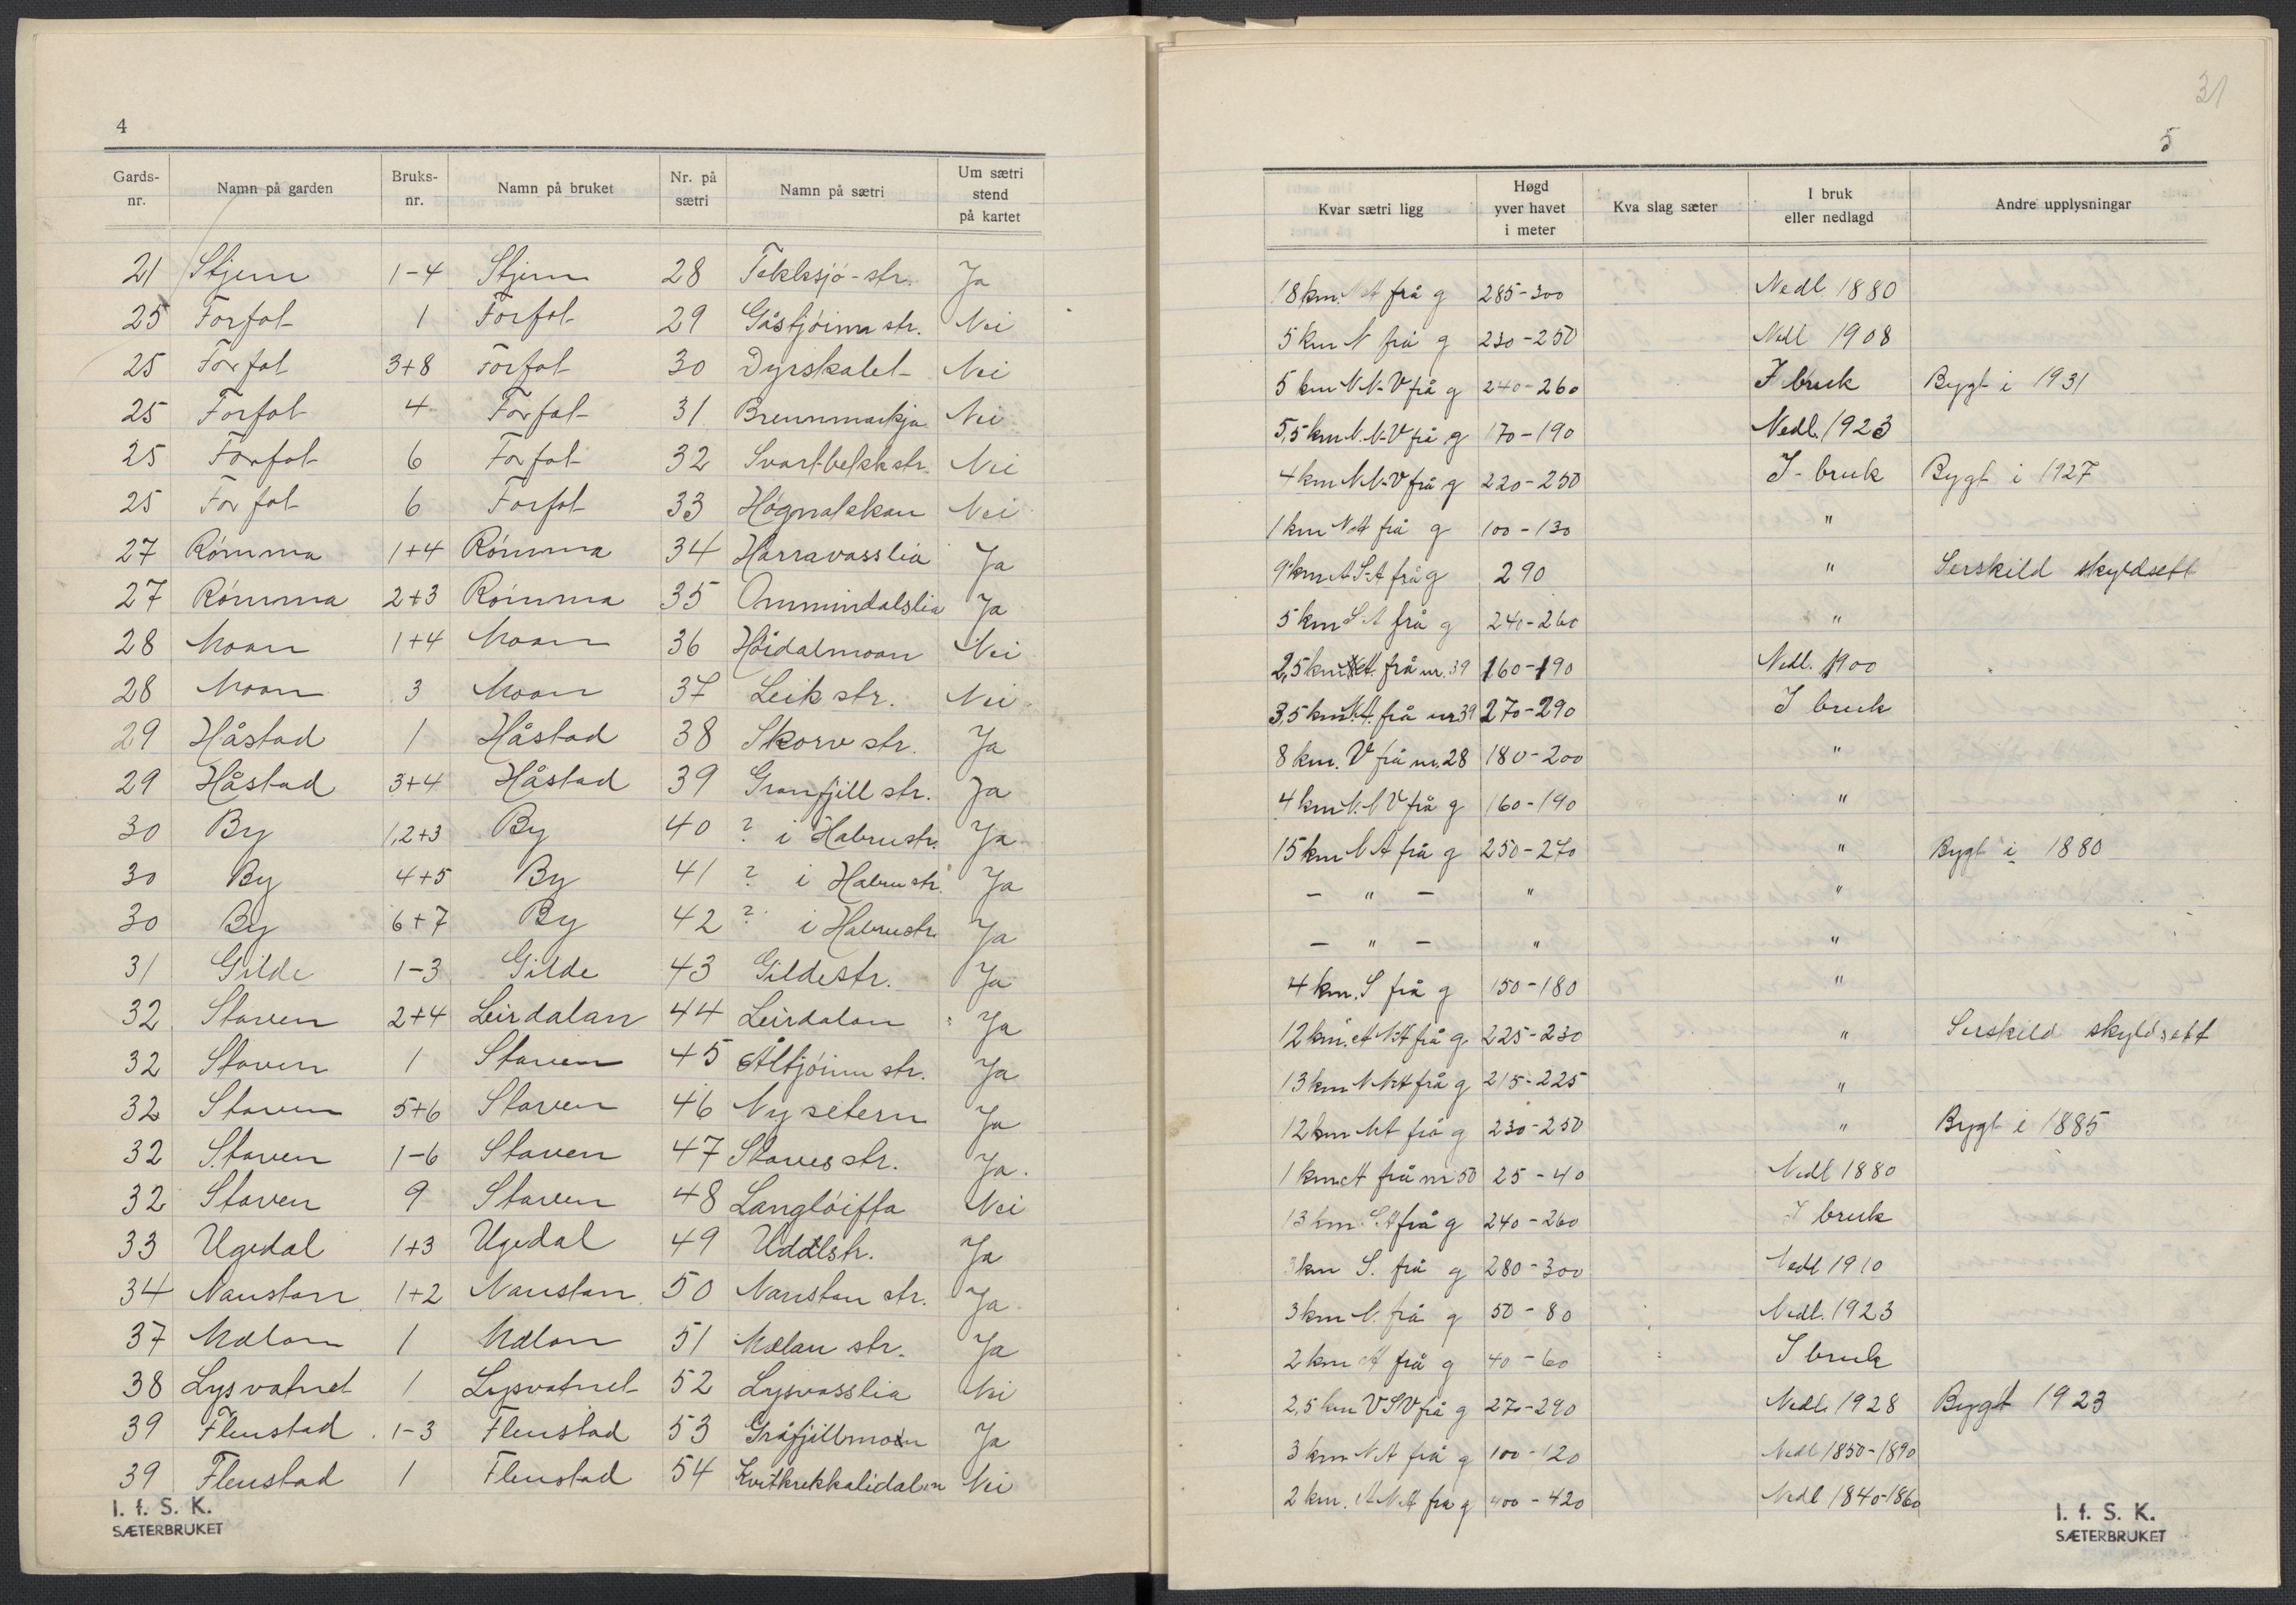 4
Gards-nr. Namn på garden Bruks-nr. Namn på bruket Nr. på sætri Namn på sætri Um sætri stend på kartet
21 Stjern 1-4 Stjern 28 Tekksjø-str. Ja
25 Forfot 1 Forfot 29 Gåstjøinn str. Nei
25 Forfot 3+8 Forfot 30 Dyrskalet Nei
25 Forfot 4 Forfot 31 Brennmarkja Nei
25 Forfot 6 Forfot 32 Svartbekkstr. Nei
25 Forfot 6 Forfot 33 Høgnalekan Nei
27 Rømma 1+4 Rømma 34 Harravasslia Ja
27 Rømma 2+3 Rømma 35 Ommundalslia Ja
28 Moan 1+4 Moan 36 Høidalmoan Nei
28 Moan 3 Moan 37 Leikstr. Nei
29 Håstad 1 Håstad 38 Skorv str. Ja
29 Håstad 3+4 Håstad 39 Granfjill str. Ja
30 By 1,2+3 By 40 ? i Habrustr. Ja
30 By 4+5 By 41 ? i Habrustr. Ja
30 By 6+7 By 42 ? i Habrustr. Ja
31 Gilde 1-3 Gilde 43 Gildestr. Ja
32 Staven 2+4 Leirdalan 44 Leirdalan Ja
32 Staven 1 Staven 45 Altjøinn str. Ja
32 Staven 5+6 Staven 46 Nysetern Ja
32 Staven 1-6 Staven 47 Stavesstr. Ja.
32 Staven 9 Staven 48 Langløifta Nei
33 Ugedal 1+3 Ugedal 49 Uddlstr. Ja
34 Naustan 1+2 Naustan 50 Naustan str. Ja
37 Mælan 1 Mælan 51 Mælan str. Ja
38 Lysvatnet 1 Lysvatnet 52 Lysvasslia Nei
39 Flenstad 1-3 Flenstad 53 Gråfjillmoen Ja
39 Flenstad 1 Flenstad 54 Nei
I. f. S. K.
SÆTERBRUKET
31
5
Kvar sætri ligg Høgd yver havet i meter Kva slag sæter I bruk eller nedlagd Andre upplysningar
18 km. NA frå g 285-300 Nedl. 1880
5 km N frå g 230-250 Nedl 1908
5 km N N-V frå g 240-260 I bruk Bygt i 1931
5,5 km N. N-V frå g 170-190 Nedl. 1923
4 km N N-V frå g 220-250 I-bruk Bygt i 1927
1 km NA frå g 100-130 "
9 km A S-A frå g 290 " Serskild skyldsett
5 km S A frå g 240-260 "
2,5 km A. frå nr. 39 160-190 Nedl. 1900
3,5 km N.A. frå nr 39 270-290 I bruk
8 km. V frå nr. 28 180-200 "
4 km N. N V frå g 160-190 "
15 km N A frå g 250-270 " Bygt i 1880
- " - " "
- " - " "
4 km. S frå g 150-180 "
12 km. A N-A frå g. 225-230 " Serskild skyldsett
13 km N NA frå g 215-225 "
12 km NA frå g 230-250 " Bygt i 1885
1 km A frå nr 50 25-40 Nedl 1880
13 km. S.A frå g 240-260 I bruk
3 km S. frå g 280-300 Nedl 1910
3 km N. frå g 50-80 Nedl. 1923
2 km A frå g 40-60 I bruk
2,5 km V SV frå g 270-290 Nedl. 1928 Bygt 1923
3 km N A frå g 100-120 Nedl 1850-1890
2 km. A N A frå g 400-420 Nedl 1840-1860
I. f. S. K.
SÆTERBRUKET